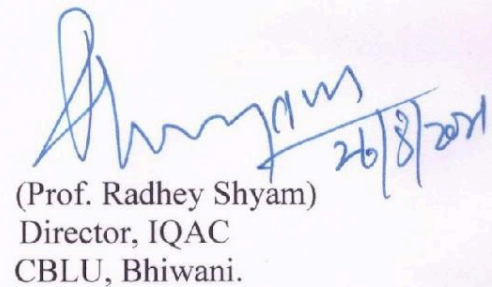 26/8/2021
(Prof. Radhey Shyam)
Director, IQAC
CBLU, Bhiwani.